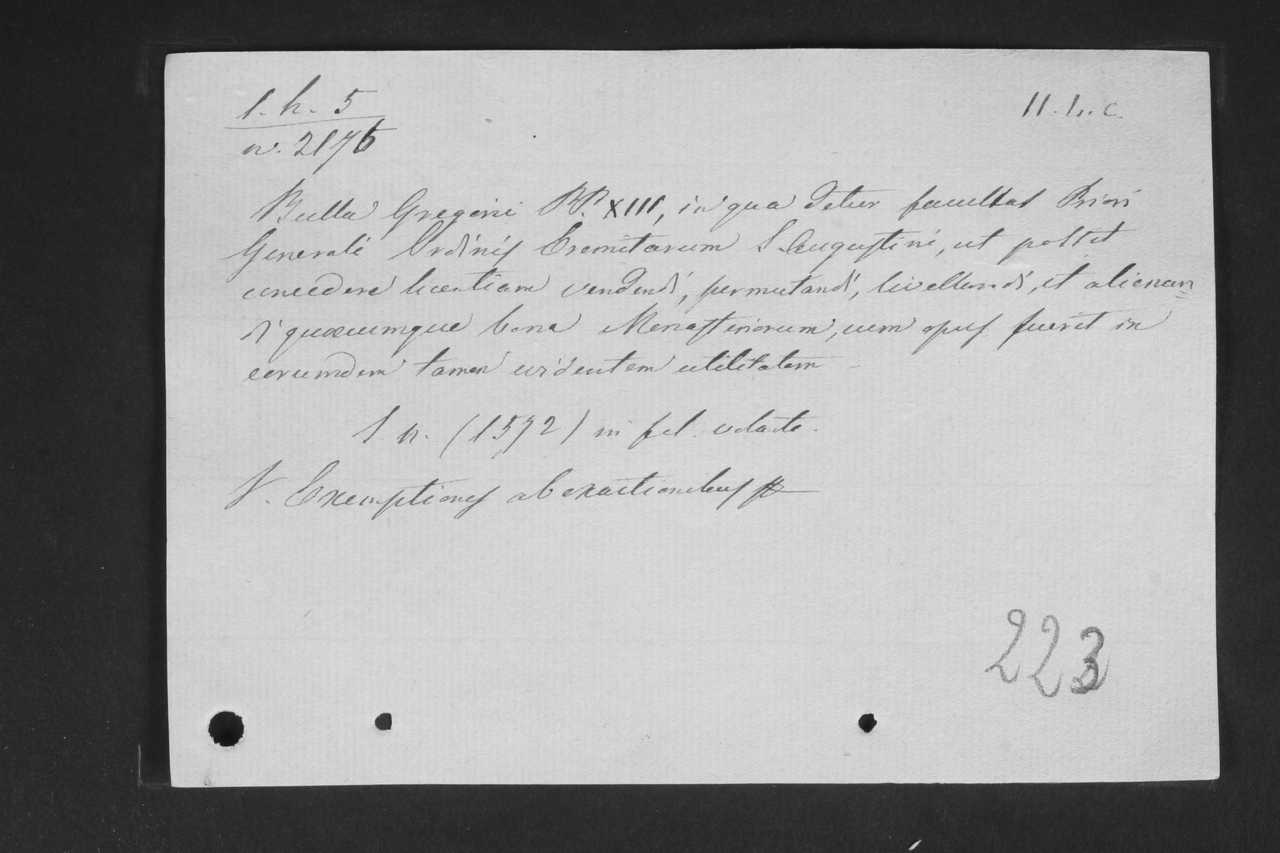 l. h. 5
n. 2176
11. h. c.
Bulla Gregorii P.P. XIII, in qua detur facultas Priori
Generali Ordinis Eremitarum S. Augustini, ut possit
concedere licentiam vendendi, permutandi, livellandi, et alienan=
di quaecumque bona Monasteriorum, cum opus fuerit in
eorumdem tamen evidentem utilitatem
1 n. (1572) in fol. volante.
V. Exemptiones ab exactionibus
223